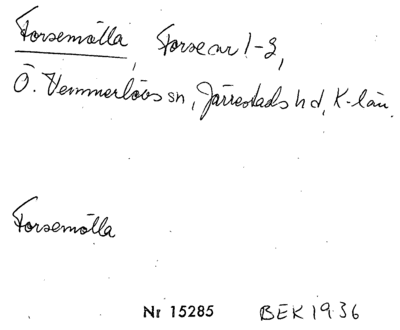 Forsemölla, Forse nr 1-3,
Ö. Vemmerlövs sn, Järrestads hd, K-län.
Forsemölla
Nr 15285 BEK 1936